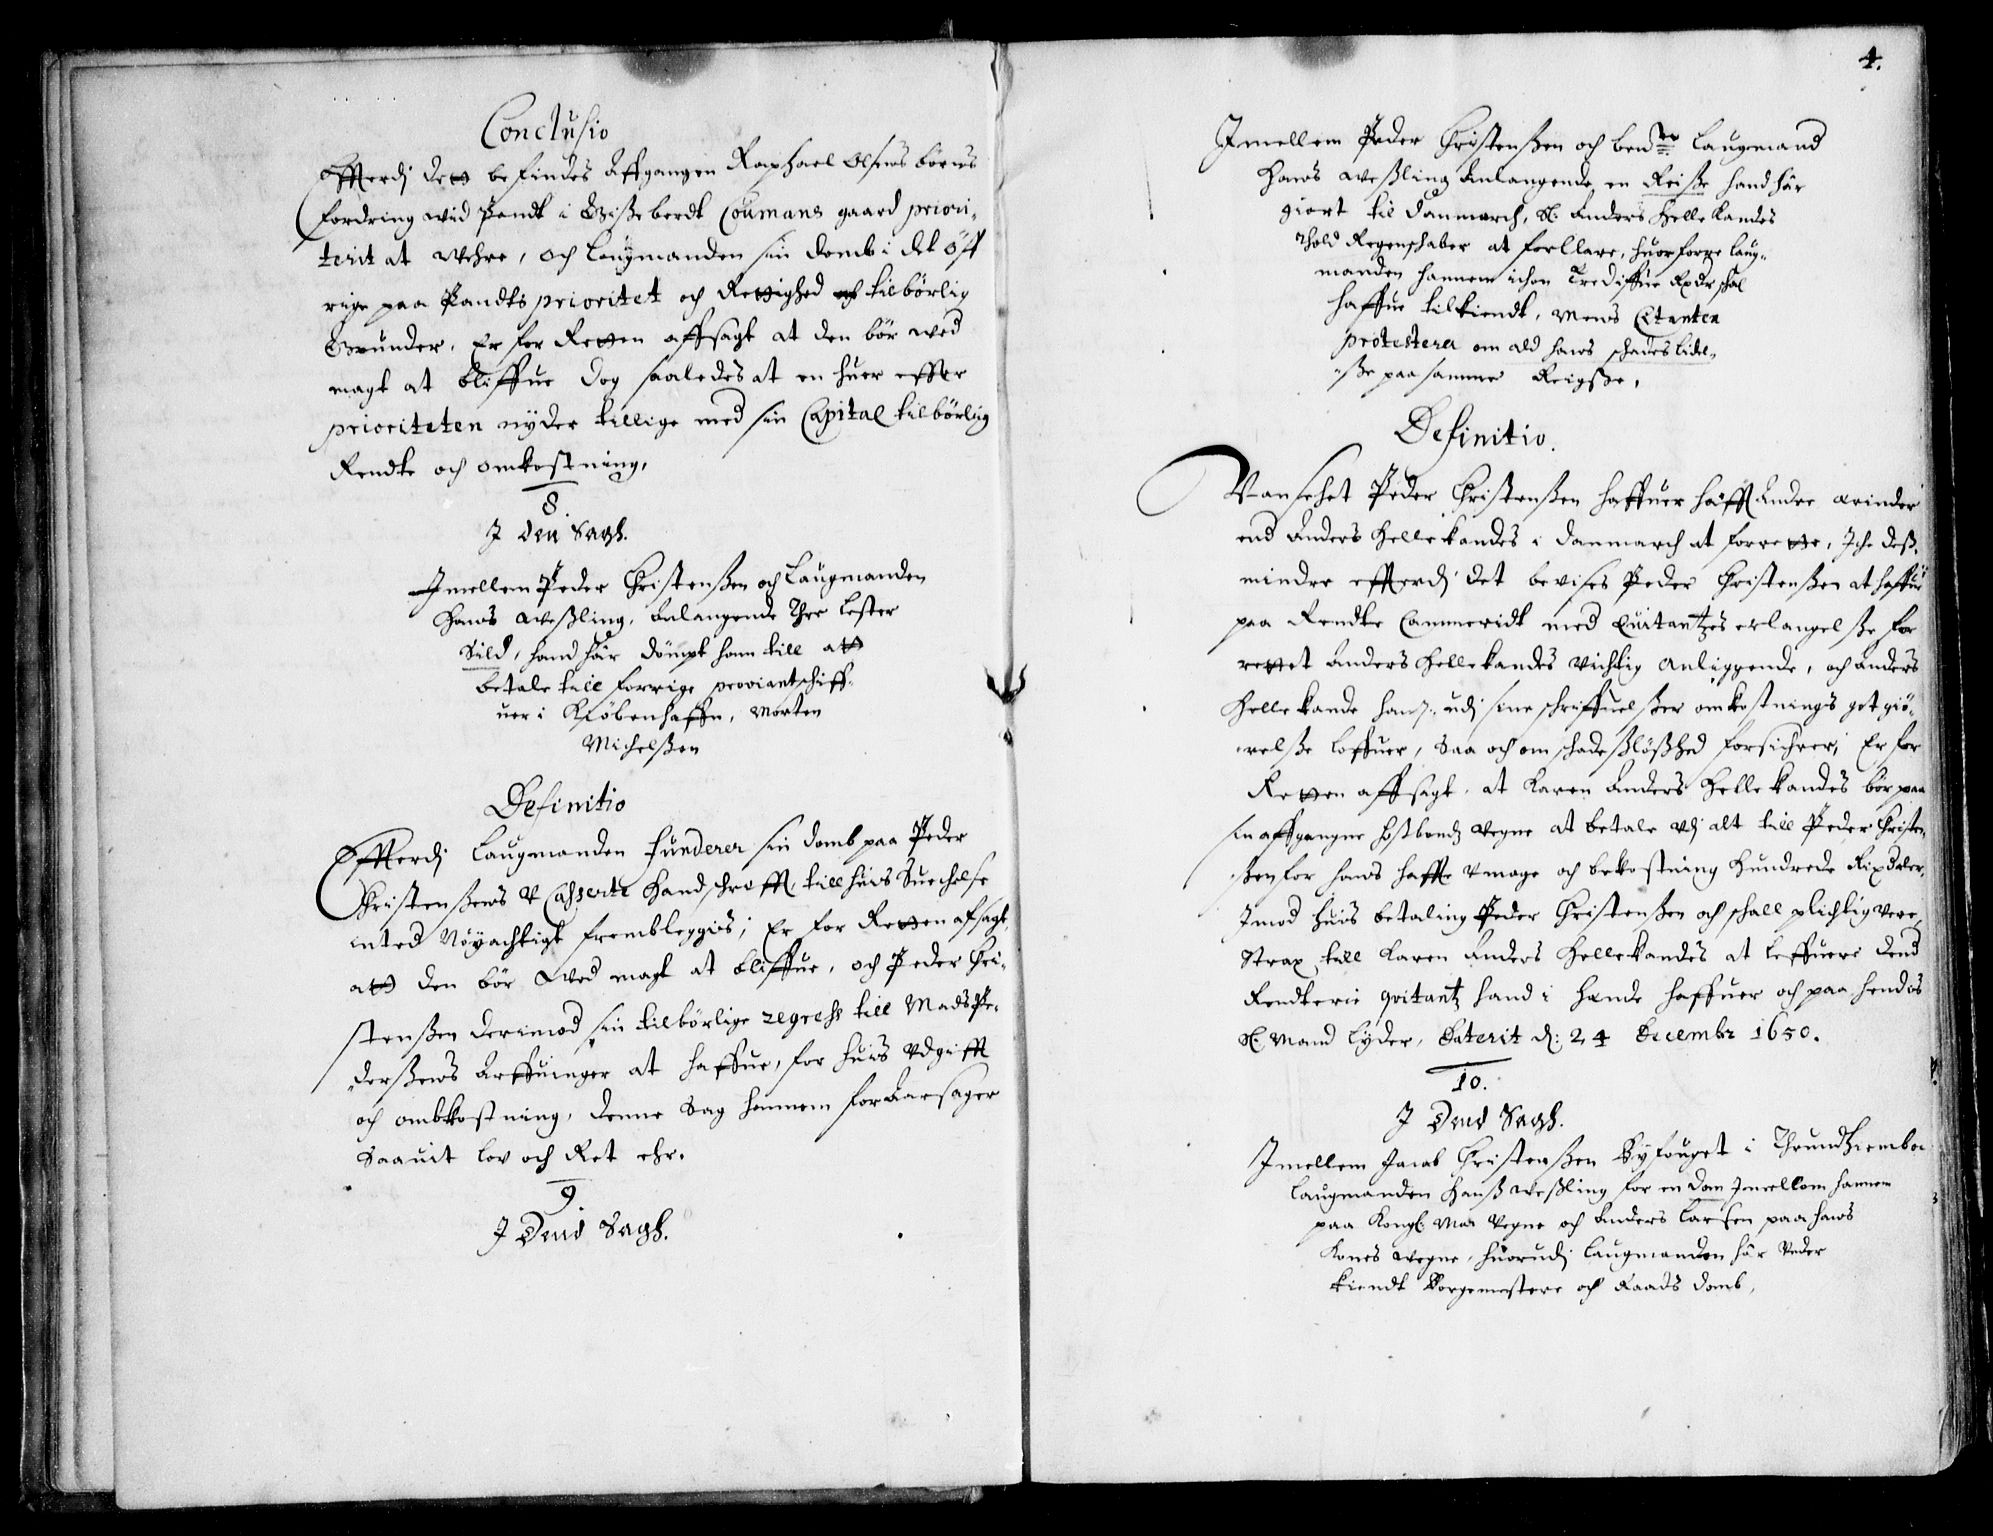 Conclusio
Effterdj det befindes Affgangen Raphael Olsens börns
fordring wid Pandt i Gißeberdt Coumans gaard priori-
terit at wehre, och Laugmanden sin domb i det öff
rige paa Pandts prioritet och Rettighed och tilbörlig
Grunder, Er for Retten affsagt at den bör wed
magt at bliffue dog saaledes at en huer effter
prioriteten nyder tillige med sin Capital tilbörlig
Rendte och omkostning,
8
J den Sagh.
Jmellem Peder Christenßen och Laugmanden
Hans Weßling, Anlangende Thre Lester
Sild, hand här dömpt ham till att
betale till forrige proviantschriff-
uer i Kiöbenhaffn, Morten
Michelßen
Definitio
Effterdj Laugmanden funderer sin domb paa Peder
Christenßens V Casserte Handschrefft, till huis Suechelse
inted Nöyachtigt frembleggis; Er for Retten afsagt,
att den bör wed magt at bliffue, och Peder Chri-
stenßen derimod sin tilbörlige regress till Mads Pe-
derßens Arffuinger at haffue, for huis Vdgifft
och ombkostning, denne Sag hannem forAarsager
Saauit lov och Ret ehr.
9
J Dend Sagh.
4.
Jmellem Peder Christenßen och bem.te Laugmand
Hans Weßling Anlangende en Reiße hand här
giort til Danmarch, S. Anders Helle Kandes
Thold Regenschaber at forklare, huorforre laug-
manden hannem ichon Trediffue Rxdr schal
haffue tilkiendt, mens Citanten
protesterer om ald hans schadeslidel-
ße paa samme Reigße,
Definitio.
Vansehet Peder Christenßen haffuer hafft Andre ærinder
end Anders Hellekandes i Danmarch at forrette, Iche deß-
mindre effterdj det bevises Peder Christenßen at haffue
paa Rendte Cammeridt med Quitantzes erlangelße for
rettet Anders Hellekandes vichtig Anliggende, och Anders
Hellekande hans udj sine schriffuelßer omkostnings got giö-
relße loffuer, Saa och om schadeßlößhed forsichrer; Er for
Retten affsagt, at Karen Anders Hellekandes bör paa
sin affgangne hoßbonds vegne at betale Vdj alt till Peder Christen-
ßen for hans haffte Vmage och bekostning Hundrede Rixdaler,
Jmod huis betaling Peder Christenßen och schall plichtig vere,
Strax till Karen Anders Hellekandes at leffuere dend
Rendterie qvitantz hand i Hænde haffuer och paa hendes
S. Mand lyder, Daterit d: 24 Decembr 1650.
10.
J Dend Sagh.
Jmellem Jacob Christenßen Byfouget i Thrundhiemb och
Laugmanden Hanß Weßling for en dom Jmellem hannem
paa Kongl. May Vegne och Anders Larsen paa hans
Kones wegne, huorudj Laugmanden här Veder
kiendt Borgemestere och Raads domb,